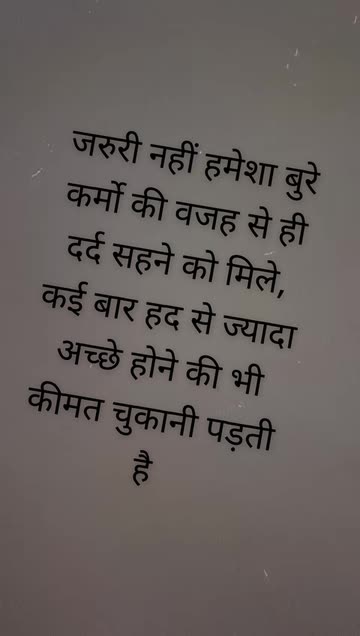 जरुरी नहीं हमेशा बुरे
कर्मो की वजह से ही
दर्द सहने को मिले,
कई बार हद से ज्यादा
अच्छे होने की भी
कीमत चुकानी पड़ती
है